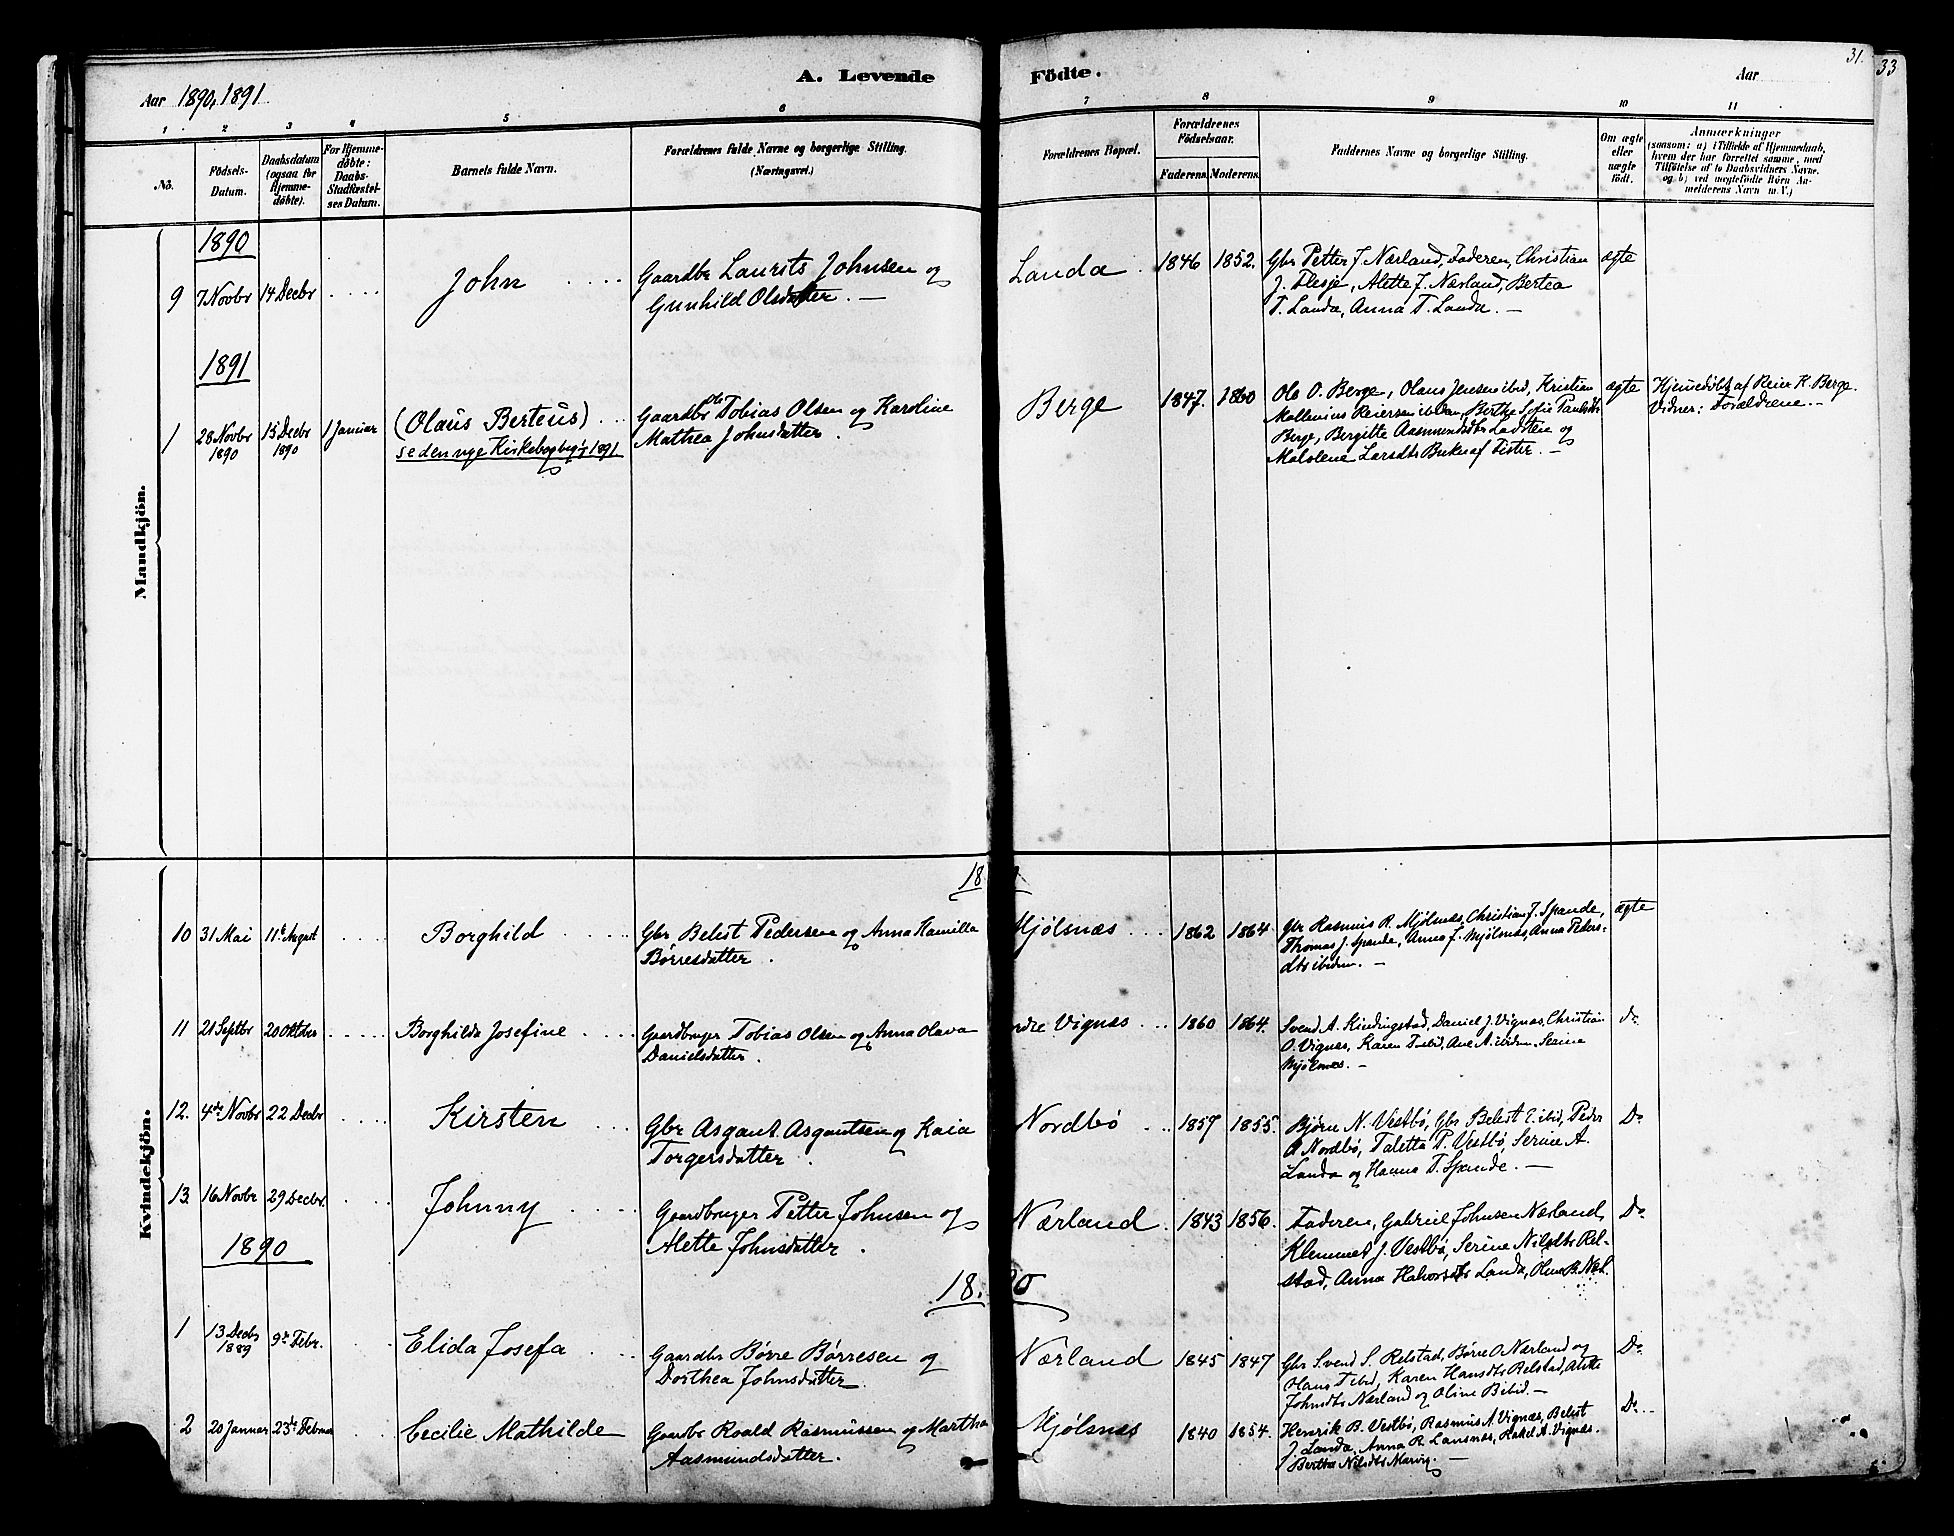 31.
33
A. Levende Födte.
Aar 1890, 1891
Aar
1 2 3 4 5 6 7 8 9 10 11
No.
Födsels-Datum.
Daabsdatum (ogsaa for Hjemme-döbte).
For Hjemme-döbte: Daabs-Stadfæstel-ses Datum.
Barnets fulde Navn.
Forældrenes fulde Navne og borgerlige Stilling. (Næringsvei.)
Forældrenes Bopæl.
Forældrenes Födselsaar.
Faderens. Moderens.
Faddernes Navne og borgerlige Stilling.
Om ægte eller uægte födt.
Anmærkninger
(saasom: a) i Tilfælde af Hjemmedaab, hvem der har forrettet samme, med Tilföielse af to Daabsvidners Navne, og b) ved uægtefödte Börn An-melderens Navn m. V.)
Mandkjön.
1890
9 7 Novbr 14 Decbr John Gaardbr Laurits Johnsen og
Gunhild Olsdatter. —
Landa 1846 1852. Gbr Petter J. Nærland, Faderen, Christian ægte
J. Flesje, Alette J. Nærland, Bertea
T. Landa, Anna T. Landa. —
1891
1 28 Novbr 1890 15 Decbr 1890 1 Januar (Olaus Berteus)
se den nye Kirkebog 1891
Gaardbr Tobias Olsen og Karoline
Mathea Johnsdatter.
Berge 1847. 1860 Ole O. Berge, Olaus Jensen ibid, Kristian ægte
Mallenius Reiersen ibidem, Berthe Sofie
Berge, Bergitte Aasmundsdtr Ladstein og
Malelene Larsdtr af Fister. —
Hjemedøbt af Reier K. Berge.
Vidner: Forældrene. —
Kvindekjön.
18
10 31 Mai 11te August Borghild Gbr Belest Pedersen og Anna Kamilla
Børresdatter.
Mjølsnæs 1862 1864. Gbr Rasmus R. Mjølsnæs, Christian J. Spande, ægte
Thomas J. Spande, Anna J. Mjølsnæs, Anna Peders-
dtr ibidem. —
11 21 Septbr 20 Oktober Borghilda Josefine Gaardbruger Tobias Olsen og Anna Olava
Danielsdatter.
ndre Vignæs 1860 1864. Svend A. Kindingstad, Daniel J. Vignæs, Christian do
O. Vignæs, Karen T. ibid, Ane A. ibidem, Serine
Mjølsnæs. —
12. 4de Novbr 22 Decbr Kirsten Gbr Asgaut Asgautsen og Kaia
Torgersdatter.
Nordbø 1857 1855. Bjørn N. Vestbø, Gbr Belest E. ibid, Peder Do
A Nordbø, Taletta P. Vestbø, Serine A.
Landa og Hanna T. Spande. —
13. 16 Novbr 29 Decbr. Johnny Gaardbruger Petter Johnsen og
Alette Johnsdatter.
Nærland 1843 1856. Faderen, Gabriel Johnsen Nærland, Do
Klemmet J. Vestbø, Serine Nilsdtr Rel-
stad, Anna Halvorsdtr Landa, Oline B. Nærl.
1890
18.90
1 13 Decbr 1889 9de Febr. Elida Josefa Gaardbr Børre Børresen og
Dorthea Johnsdatter.
Nærland 1845 1847 Gbr Svend S. Relstad, Børre O Nærland og Do
Hans T ibid, Karen Hansdtr Relstad, Alette
Johnsdtr Nærland og Oline B ibid. —
2 20 Januar 23de Februar Cecilie Mathilde Gaardbr Roald Rasmussen og Martha
Aasmundsdatter.
Mjølsnæs 1840 1854. Henrik B. Vestbø, Rasmus A. Vignæs, Belest Do
J. Landa, Anna R. Lansnæs, Rakel A. Vignæs.
Bertha Nilsdtr Marvig —